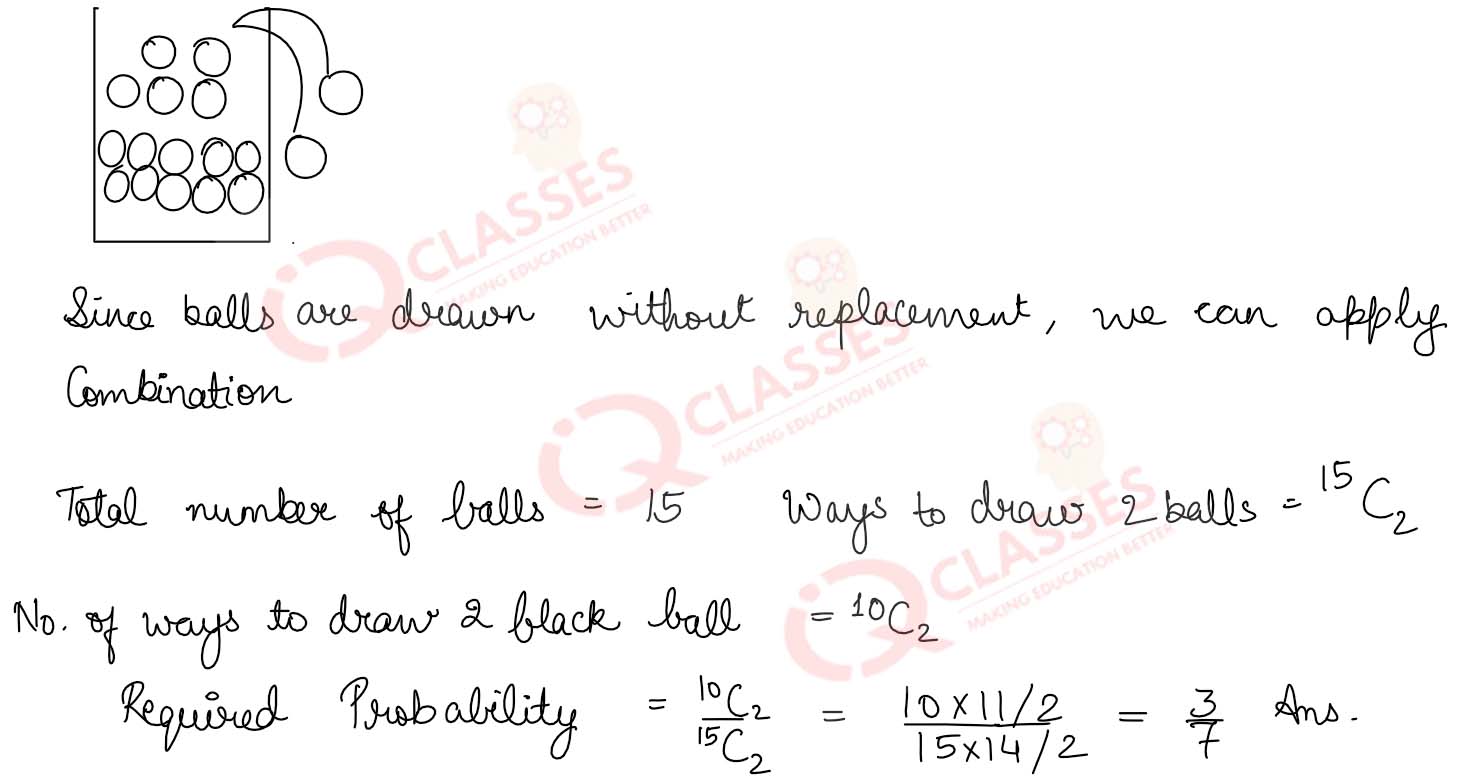 Since balls are drawn without replacement, we can apply
Combination
Total number of balls = 15 Ways to draw 2 balls = ¹⁵C₂
No. of ways to draw 2 black ball = ¹⁰C₂
Required Probability = ¹⁰C₂/¹⁵C₂ = (10×11/2)/(15×14/2) = 3/7 Ans.
iQ CLASSES
MAKING EDUCATION BETTER
iQ CLASSES
MAKING EDUCATION BETTER
iQ CLASSES
MAKING EDUCATION BETTER